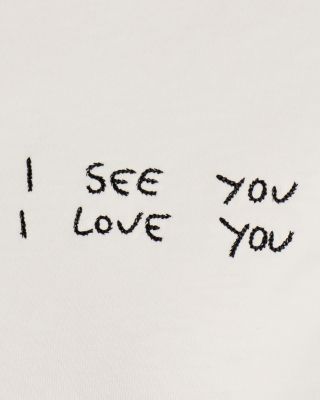 I SEE YOU
I LOVE YOU